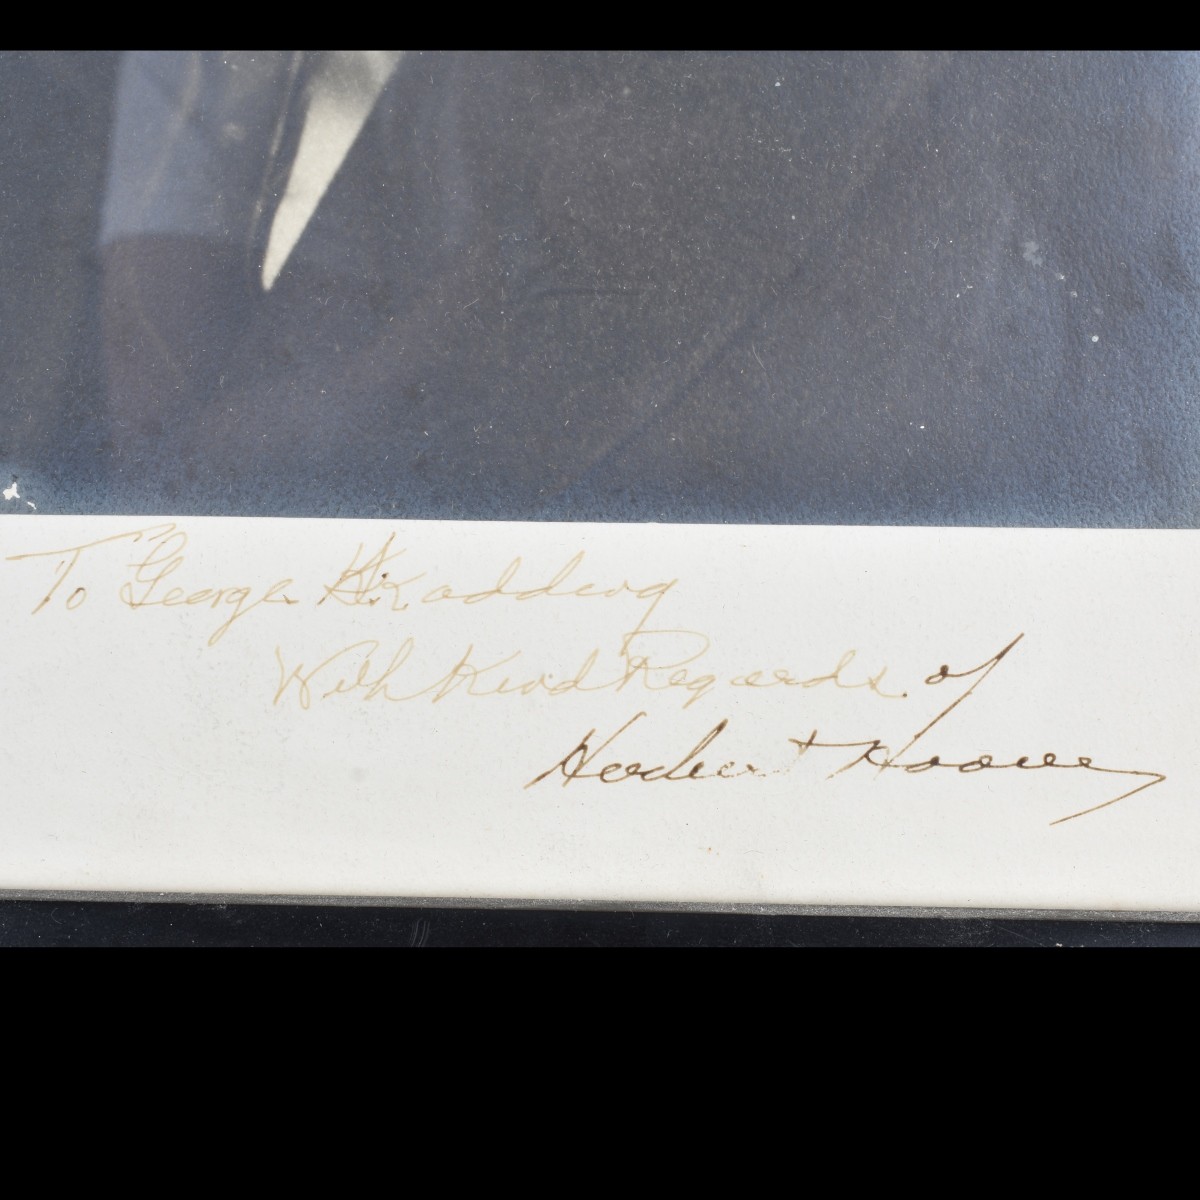 To George
With Kind Regards of
Herbert Hoover